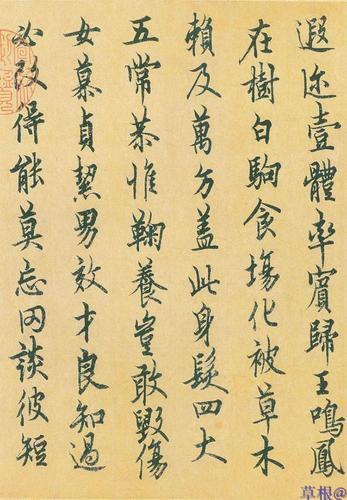 遐迩壹體率賓歸王鳴鳳
在樹白駒食場化被草木
賴及萬方盖此身髮四大
五常恭惟鞠養豈敢毀傷
女慕貞絜男效才良知過
必改得能莫忘罔談彼短
草根@